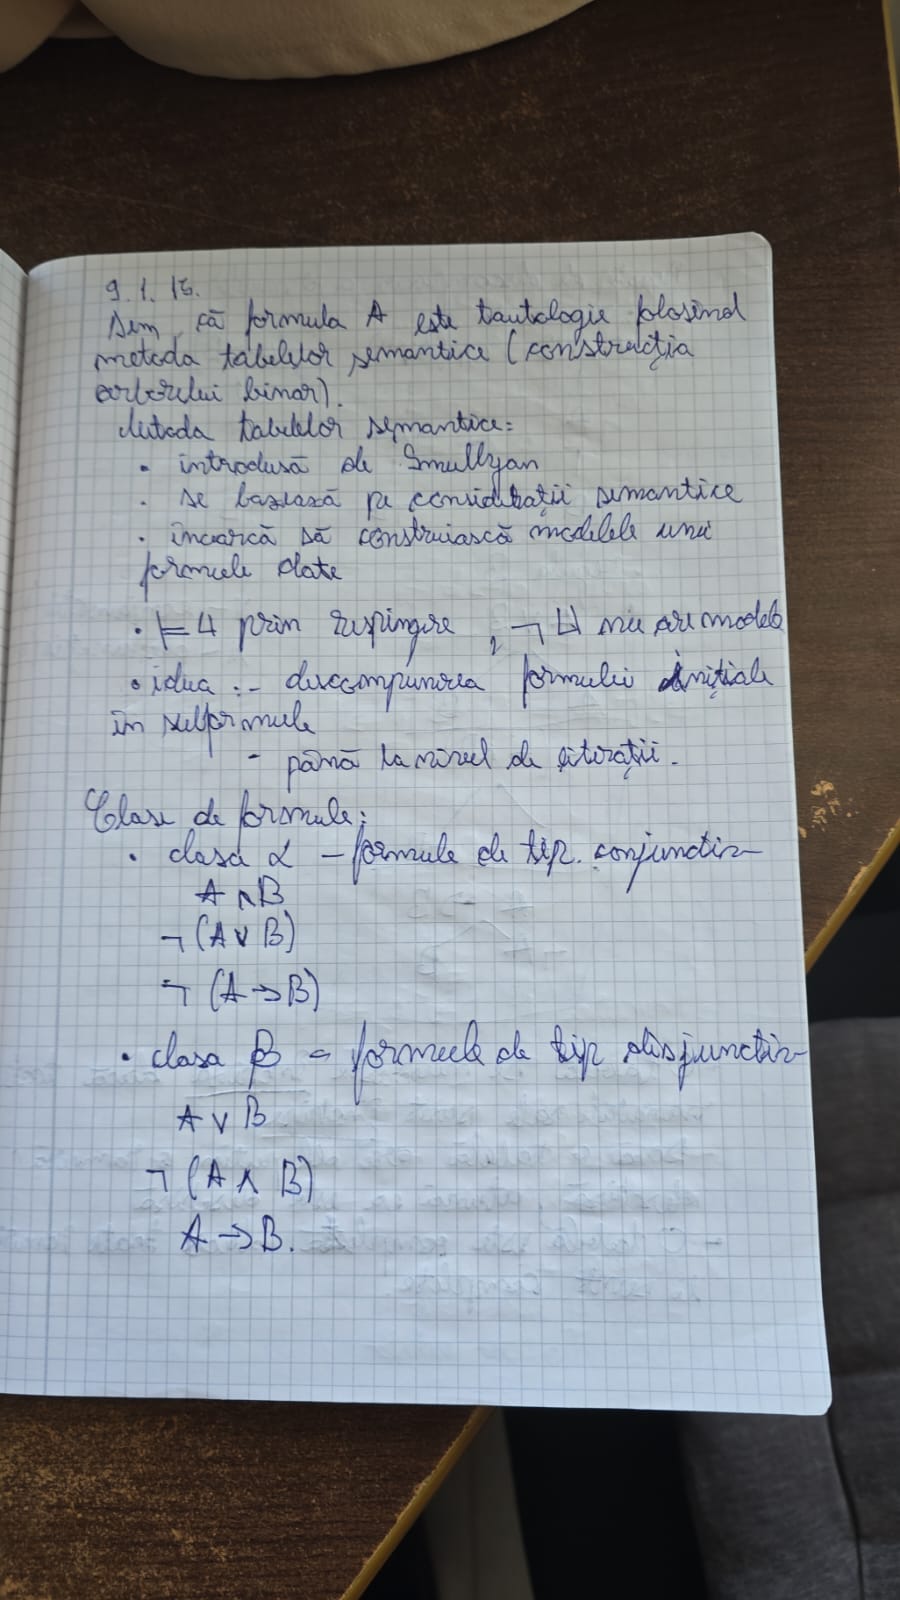 9.1.13.
Dem. că formula A este tautologie folosind
metoda tabelelor semantice (construcția
arborelui binar).
Metoda tabelelor semantice:
• introdusă de Smullyan
• se bazează pe considerații semantice
• încearcă să construiască modelele unei
formule date
• ⊨ U prin respingere, ¬ U nu are modele
• ideea :- descompunerea formulei inițiale
în subformule
- până la nivel de literații.
Clase de formule:
• clasa α - formule de tip. conjunctiv
A ∧ B
¬ (A ∨ B)
¬ (A → B)
• clasa β = formule de tip disjunctiv
A ∨ B
¬ (A ∧ B)
A → B.